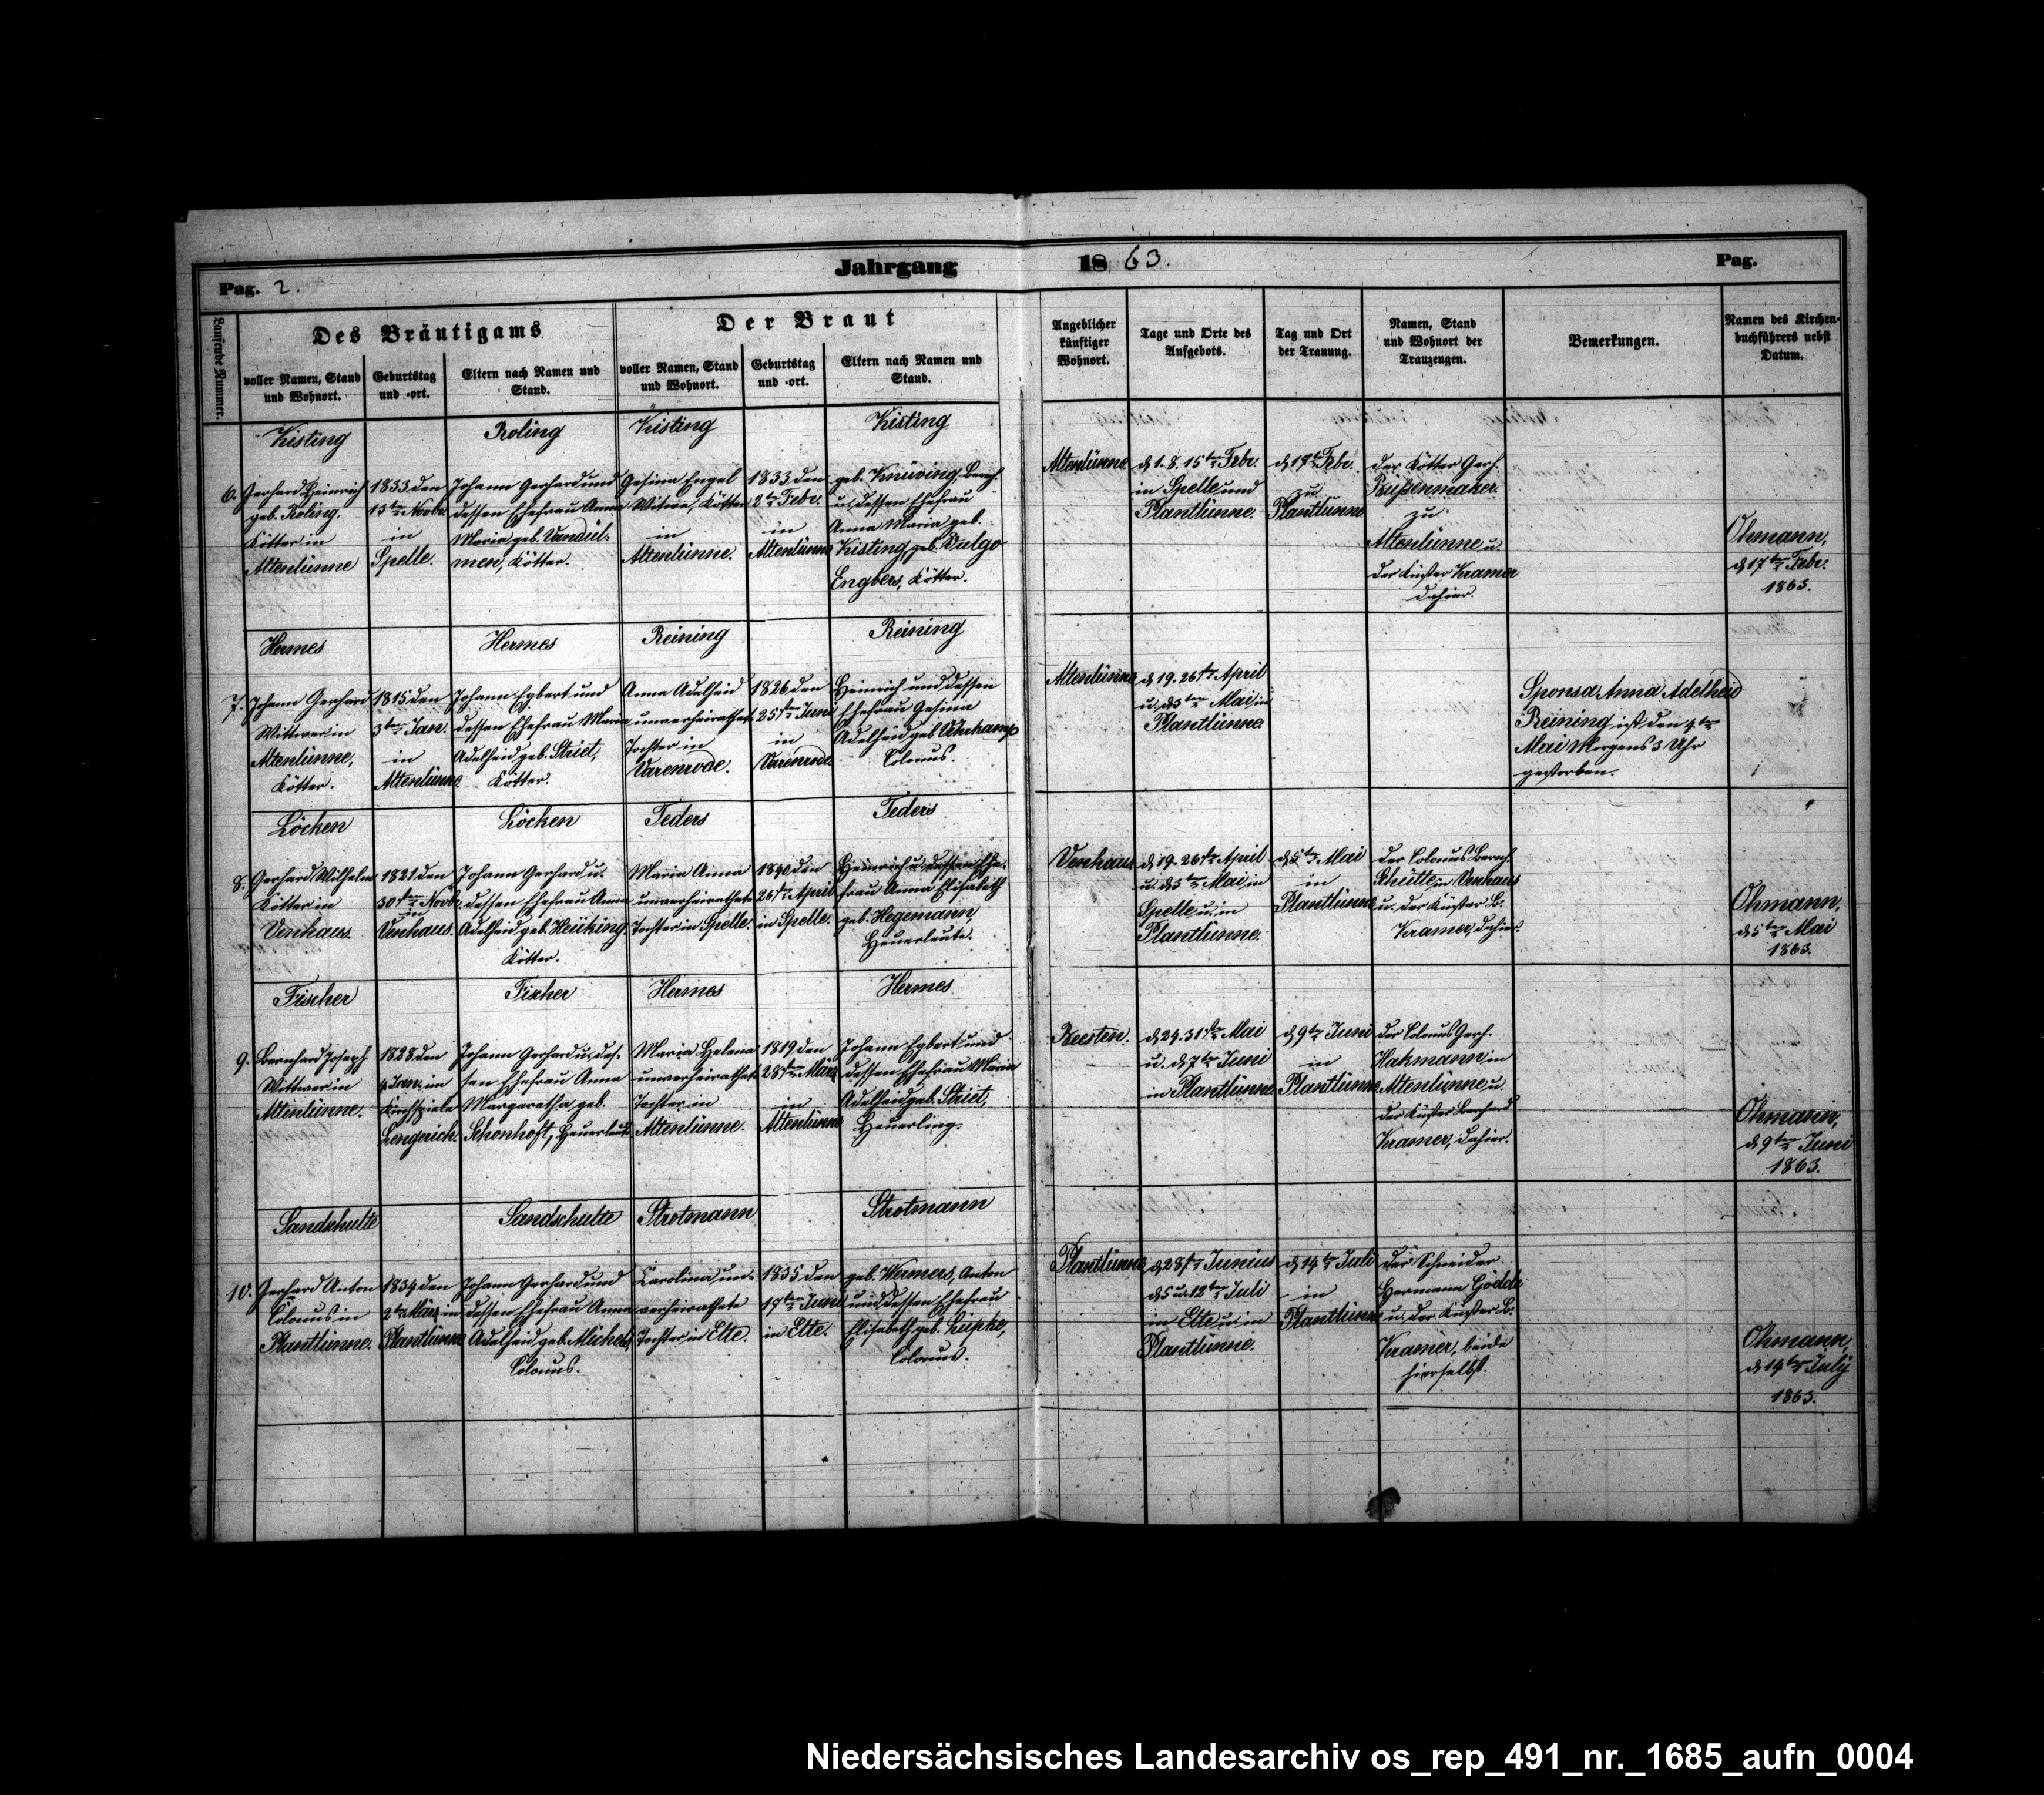 Jahrgang 1863.
Pag. 2.
Pag.
Laufende Nummer.
Des Bräutigams
Der Braut
voller Namen, Stand
und Wohnort.
Geburtstag
und -ort.
Eltern nach Namen und
Stand.
voller Namen, Stand
und Wohnort.
Geburtstag
und -ort.
Eltern nach Namen und
Stand.
Angeblicher
künftiger
Wohnort.
Tage und Orte des
Aufgebots.
Tag und Ort
der Trauung.
Namen, Stand
und Wohnort der
Trauzeugen.
Bemerkungen.
Namen des Kirchen-
buchführers nebst
Datum.
6.
Kisting
Gerhard Heinrich
geb. Roling.
Kötter in
Altenlünne
1833 den
13ten Novbr.
in
Spelle.
Roling
Johann Gerhard und
dessen Ehefrau Anna
Maria geb. Vandül-
men, Kötter.
Kisting
Gesina Engel
Witwe, Kötter
in
Altenlünne.
1833 den
2ten Febr.
in
Altenlünne
Kisting
geb. Knüving, Bernh.
u. dessen Ehefrau
Anna Maria geb.
Kisting, geb. Vulgo
Engbers, Kötter.
Altenlünne
d. 1. 8. 15ten Febr.
in Spelle und
Plantlünne.
d. 17ten Febr.
zu
Plantlünne
der Kötter Gerh.
Pußenmaker
zu
Altenlünne u.
der Küster Kramer
dahier.
Ohmann,
d. 17ten Febr.
1863.
7.
Hermes
Johann Gerhard
Wittwer in
Altenlünne,
Kötter.
1815 den
3ten Jan.
in
Altenlünne
Hermes
Johann Egbert und
dessen Ehefrau Maria
Adelheid geb. Striet,
Kötter.
Reining
Anna Adelheid
unverheirathete
Tochter in
Varenrode.
1826 den
25ten Juni
in
Varenrode
Reining
Heinrich und dessen
Ehefrau Gesina
Adelheid geb. Uhrkamp
Colonus.
Altenlünne
d. 19. 26ten April
u. d. 3ten Mai in
Plantlünne.
Sponsa Anna Adelheid
Reining ist den 4ten
Mai Morgens 3 Uhr
gestorben.
8.
Löcken
Gerhard Wilhelm
Kötter in
Venhaus.
1821 den
30ten Novbr.
in
Venhaus.
Löcken
Johann Gerhard u.
dessen Ehefrau Anna
Adelheid geb. Heüking
Kötter.
Teders
Maria Anna
unverheirathete
Tochter in Spelle.
1840 den
26ten April
in Spelle.
Teders
Heinrich u. dessen Ehe-
frau Anna Elisabeth
geb. Hegemann,
Heuerleute.
Venhaus
d. 19. 26ten April
u. d. 3ten Mai in
Spelle u. in
Plantlünne.
d. 5ten Mai
in
Plantlünne
der Colonus Bernh.
Schütte in Venhaus
u. der Küster B.
Kramer, dahier.
Ohmann,
d. 5ten Mai
1863.
9.
Fischer
Bernhard Joseph
Wittwer in
Altenlünne.
1828 den
4. Jan. im
Kirchspiele
Lengerich.
Fischer
Johann Gerhard u. des-
sen Ehefrau Anna
Margaretha geb.
Schonhoft, Heuerleute
Hermes
Maria Helena
unverheirathete
Tochter in
Altenlünne.
1819 den
28ten März
in
Altenlünne
Hermes
Johann Egbert und
dessen Ehefrau Maria
Adelheid geb. Striet,
Heuerling.
Beesten.
d. 24. 31ten Mai
u. d. 7ten Juni
in Plantlünne.
d. 9ten Juni
in
Plantlünne
der Colonus Gerh.
Hakmann in
Altenlünne u.
der Küster Berhard
Kramer, dahier.
Ohmann,
d. 9ten Juni
1863.
10.
Sandschulte
Gerhard Anton
Colonus in
Plantlünne.
1834 den
2ten März in
Plantlünne
Sandschulte
Johann Gerhard und
dessen Ehefrau Anna
Adelheid geb. Michels,
Colonus.
Strotmann
Carolina un-
verheirathete
Tochter in Elte.
1835 den
17ten Juni
in Elte.
Strotmann
geb. Wermers, Anton
und dessen Ehefrau
Elisabeth geb. Lüpke,
Colonus.
Plantlünne
d. 28ten Junius
d. 5 u. 12ten Juli
in Elte u. in
Plantlünne.
d. 14ten Juli
in
Plantlünne
der Schneider
Hermann Gödde
u. der Küster B.
Kramer, beide
hierselbst.
Ohmann,
d. 14ten July
1863.
Niedersächsisches Landesarchiv os_rep_491_nr._1685_aufn_0004